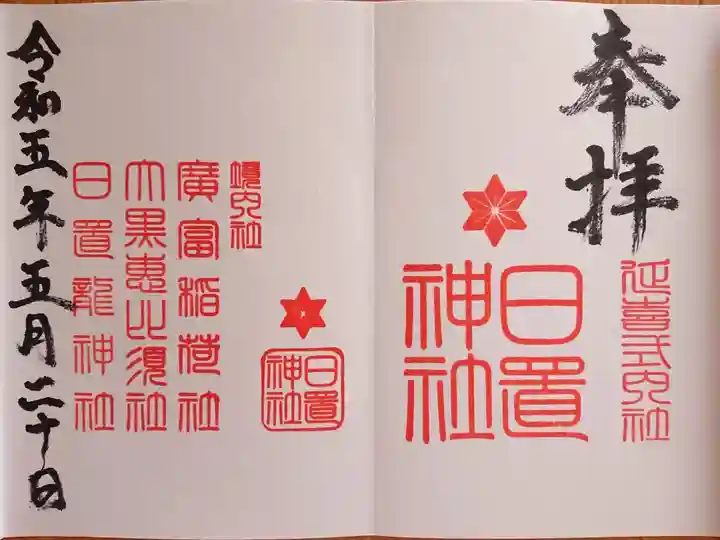 奉拝
延喜式内社
日置
神社
境内社
廣富稲荷社
大黒恵比須社
日置龍神社
日置
神社
令和五年五月二十日